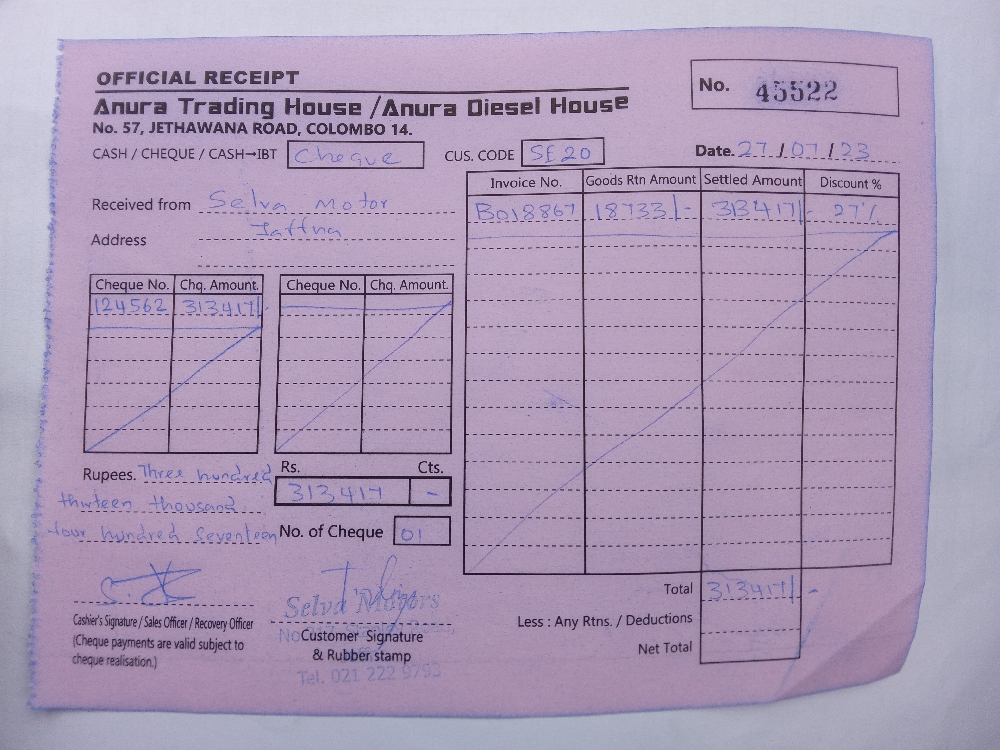 OFFICIAL RECEIPT
No. 45522
Anura Trading House / Anura Diesel House
No. 57, JETHAWANA ROAD, COLOMBO 14.
CASH / CHEQUE / CASH→IBT Cheque CUS. CODE SE 20 Date. 27 / 07 / 23
Invoice No. Goods Rtn Amount Settled Amount Discount %
B018867 18733/- 313417/- 27%
Received from Selva Motor
Address Jaffna
Cheque No. Chq. Amount. Cheque No. Chq. Amount.
124562 313417/-
Rupees. Three hundred
thirteen thousand
four hundred seventeen
Rs. Cts.
313417 -
No. of Cheque 01
Total 313417/-
Less : Any Rtns. / Deductions
Net Total
Cashier's Signature / Sales Officer / Recovery Officer
(Cheque payments are valid subject to
cheque realisation.)
Selva Motors
Customer Signature
& Rubber stamp
Tel. 021 222 9793